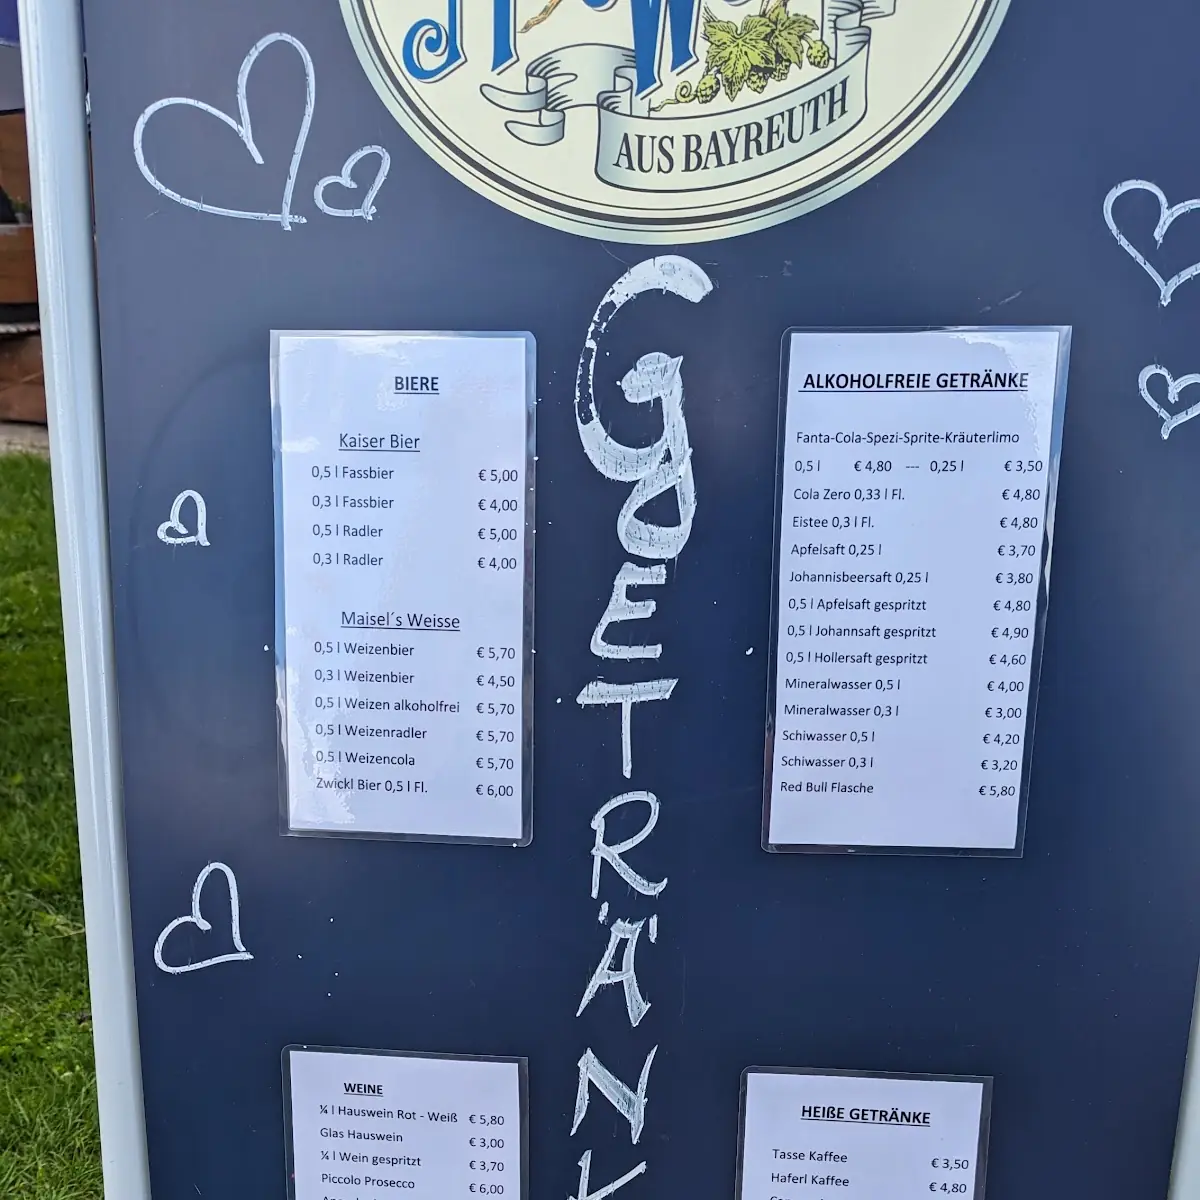 AUS BAYREUTH
GETRÄN
BIERE
Kaiser Bier
0,5 l Fassbier € 5,00
0,3 l Fassbier € 4,00
0,5 l Radler € 5,00
0,3 l Radler € 4,00
Maisel´s Weisse
0,5 l Weizenbier € 5,70
0,3 l Weizenbier € 4,50
0,5 l Weizen alkoholfrei € 5,70
0,5 l Weizenradler € 5,70
0,5 l Weizencola € 5,70
Zwickl Bier 0,5 l Fl. € 6,00
ALKOHOLFREIE GETRÄNKE
Fanta-Cola-Spezi-Sprite-Kräuterlimo
0,5 l € 4,80 --- 0,25 l € 3,50
Cola Zero 0,33 l Fl. € 4,80
Eistee 0,3 l Fl. € 4,80
Apfelsaft 0,25 l € 3,70
Johannisbeersaft 0,25 l € 3,80
0,5 l Apfelsaft gespritzt € 4,80
0,5 l Johannsaft gespritzt € 4,90
0,5 l Hollersaft gespritzt € 4,60
Mineralwasser 0,5 l € 4,00
Mineralwasser 0,3 l € 3,00
Schiwasser 0,5 l € 4,20
Schiwasser 0,3 l € 3,20
Red Bull Flasche € 5,80
WEINE
¼ l Hauswein Rot - Weiß € 5,80
Glas Hauswein € 3,00
¼ l Wein gespritzt € 3,70
Piccolo Prosecco € 6,00
HEIßE GETRÄNKE
Tasse Kaffee € 3,50
Haferl Kaffee € 4,80